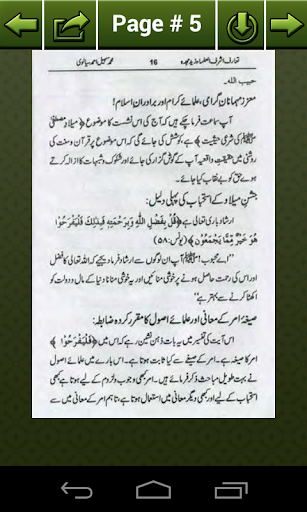 Page # 5
16
حبیب اللہ۔
معزز مہمانان گرامی، علمائے کرام اور برادران اسلام!
آپ سماعت فرما چکے ہیں کہ آج کی اس نشست کا موضوع ﴿میلاد مصطفیٰ
ﷺ کی شرعی حیثیت﴾ ہے، کوشش کی جائے گی کہ اس موضوع پر قرآن و سنت کی
روشنی میں حقیقتِ واقعیہ آپ کے گوش گزار کی جائے اور شکوک و شبہات کا ازالہ کرتے
ہوئے حق کو بے نقاب کیا جائے۔
جشن میلاد کے استحباب کی پہلی دلیل:
ارشاد باری تعالیٰ ہے ﴿قُلْ بِفَضْلِ اللَّهِ وَبِرَحْمَتِهِ فَبِذَلِكَ فَلْيَفْرَحُوْا
هُوَ خَيْرٌ مِّمَّا يَجْمَعُوْنَ﴾ (یونس:۵۸)
”اے محبوب! آپ ان لوگوں سے ارشاد فرما دیجئے کہ اللہ تعالیٰ کا فضل
اور اس کی رحمت حاصل ہونے پر خوشی منائیں اور یہ خوشی منانا دنیا کے مال و دولت کو
اکٹھا کرنے سے بہتر ہے“
صیغۂ امر کے معانی اور علمائے اصول کا مقرر کردہ ضابطہ:
اس آیت کی تفسیر میں یہ بات ذہن نشین رہے کہ اس میں ﴿فَلْيَفْرَحُوْا﴾
امر کا صیغہ ہے۔ امر کے صیغے سے کیا ثابت ہوتا ہے۔ اس بارے میں علمائے اصول
نے بہت طویل مباحث ذکر فرمائے ہیں۔ امر کبھی وجوب و لزوم کے لیے ہوتا ہے کبھی
استحباب کے لیے اور کبھی دیگر معانی میں استعمال ہوتا ہے، تاہم امر کے معانی میں سے